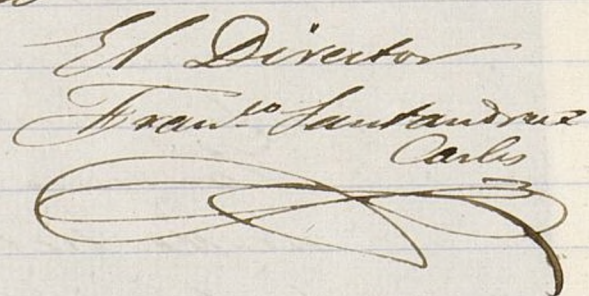 El Director
Franco Santandreu
Carlos